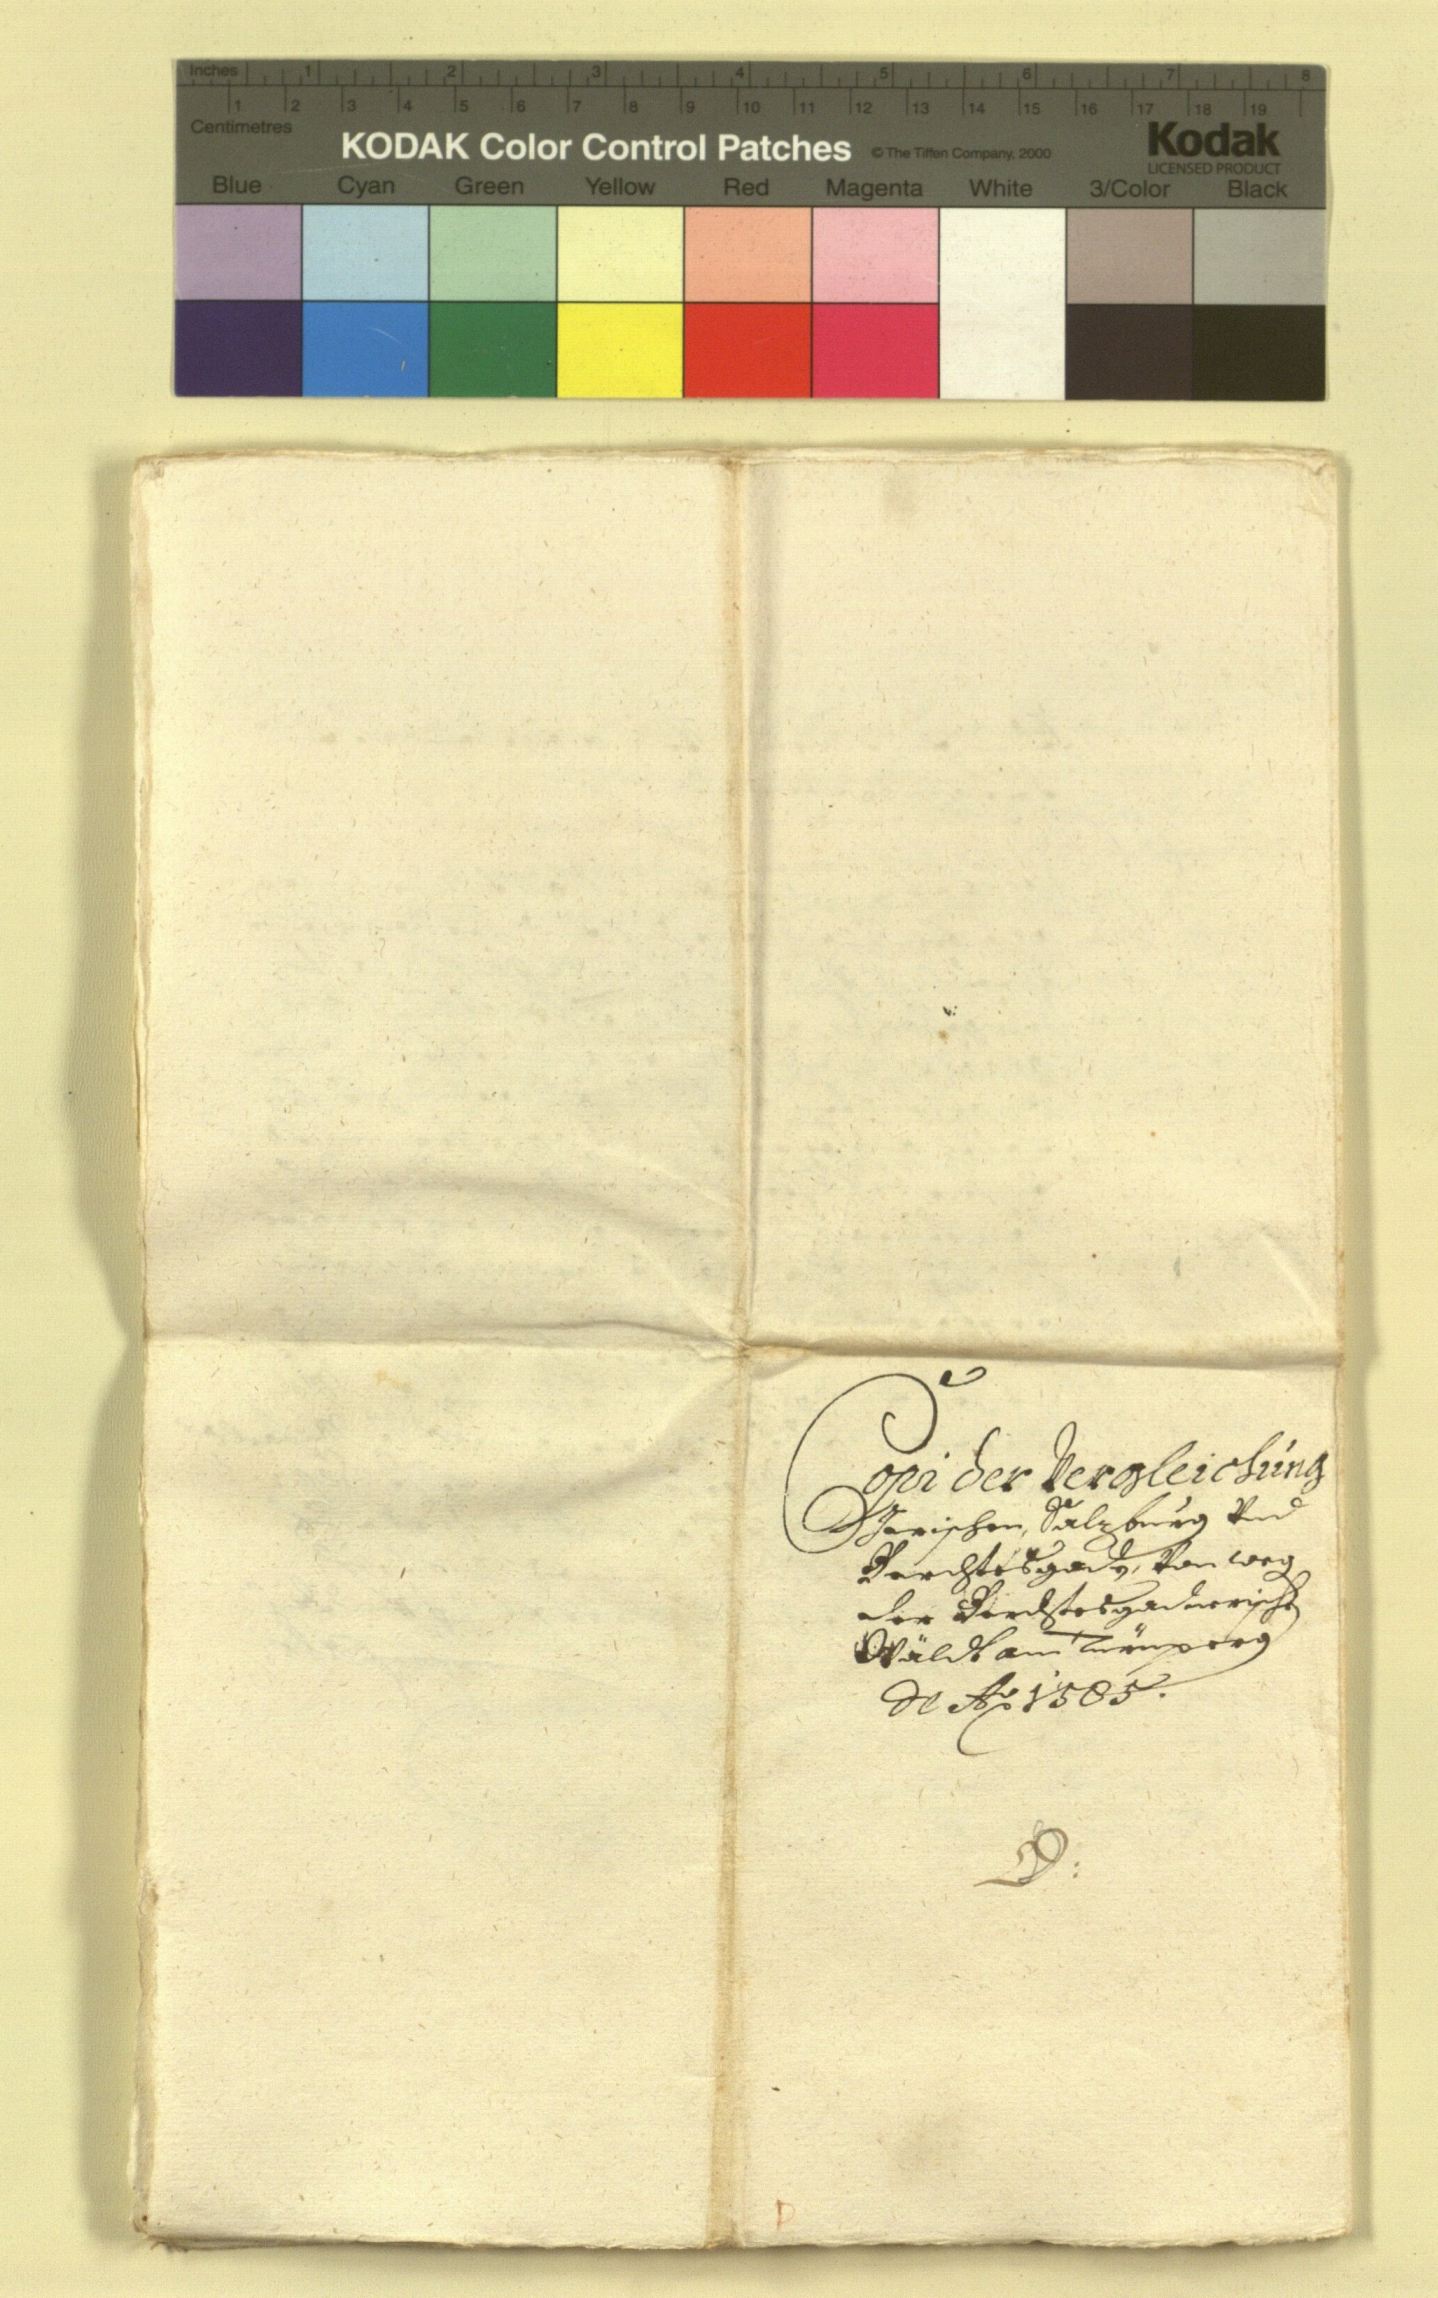 Inches 1 2 3 4 5 6 7 8
1 2 3 4 5 6 7 8 9 10 11 12 13 14 15 16 17 18 19
Centimetres
KODAK Color Control Patches © The Tiffen Company, 2000 Kodak
LICENSED PRODUCT
Blue Cyan Green Yellow Red Magenta White 3/Color Black
Copi der Vergleichúng
Zwischen Salzbúrg Vnd
Berchtesgad, Von weg
der Berchtesgadnerische
Wäldt am Türnperg
de Ao 1585.
D:
D